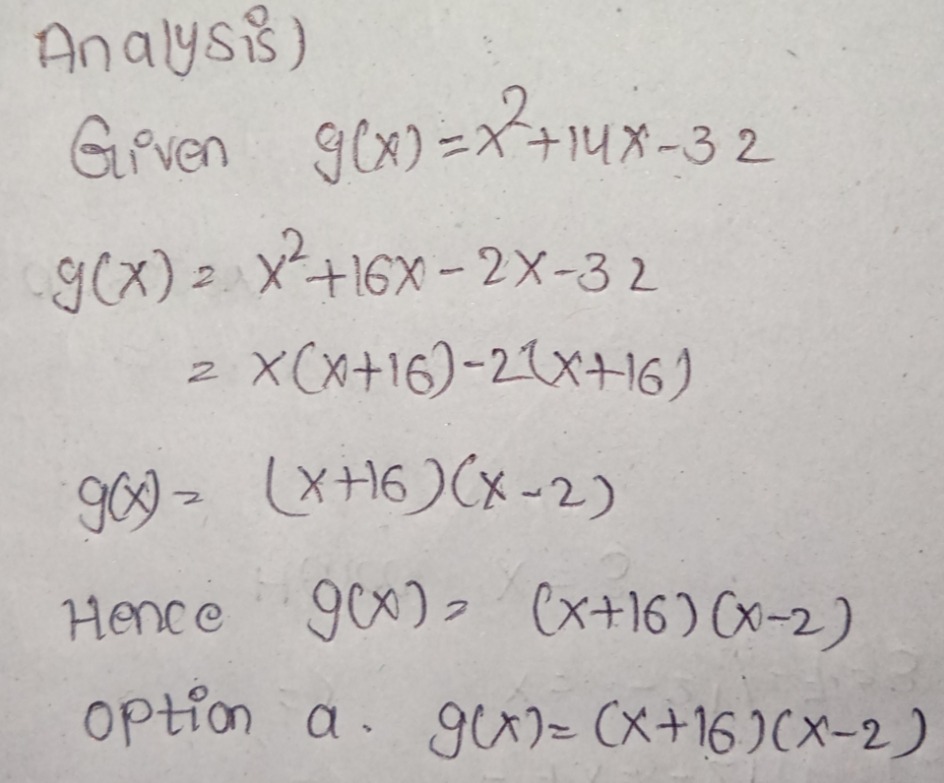 Analysis)
Given g(x) = x²+14x-32
g(x) = x²+16x-2x-32
= x(x+16)-2(x+16)
g(x) = (x+16)(x-2)
Hence g(x) = (x+16)(x-2)
option a. g(x) = (x+16)(x-2)